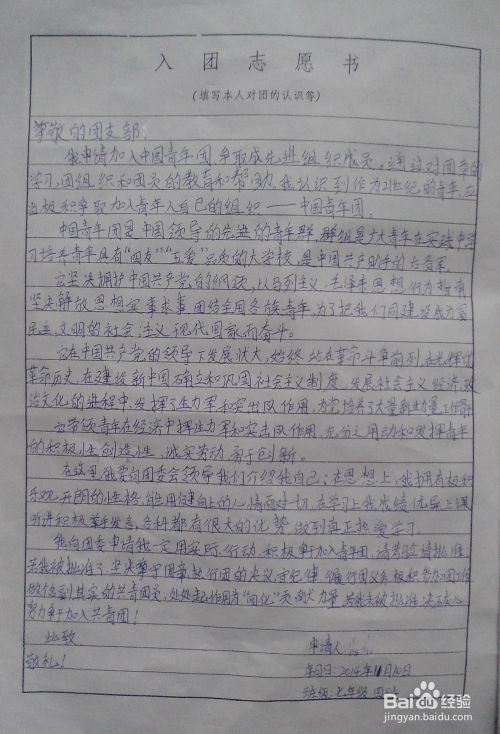 入团志愿书
(填写本人对团的认识等)
尊敬的团支部:
我申请加入中国青年团,争取成先进组织成员。通过对团章的
学习,团组织和团员的教育和帮助,我认识到作为21世纪的青年,应
当积极争取加入青年人自己的组织——中国青年团。
中国青年团是中国领导的先进的青年群,群组是广大青年在实践中学
习培养青年具有"四友""五爱"品质的大学校,是中国共产助手的后备军。
它坚决拥护中国共产党的纲领,以马列主义、毛泽东思想,行为指南
坚决解放思想实事求事,团结全国各族青年,为了把我们国建设成为富
民主,文明的社会主义现代国家而奋斗。
它在中国共产党的领导下发展状大,始终站在革命斗争前列,
革命历史,在建设新中国确立和巩固社会主义制度,发展社会主义经济,政
治文化的进程中,发挥了生力军和突出队作用,为党培养了大量新生力量
青年在经济中挥生力军和突击队作用,充分
的积极性创造性,诚实劳动,勇于创新。
在这里,我要向团委会领导我们介绍我自己:在思想上,我拥有极积
乐观,开朗的性格,能用健向上的心情面对一切,在学习上,我成绩优异,上课
听讲积极,举手发言,各科都有很大的优势,做到真正热爱学习。
我向团委申请,我一定用实际行动,积极争加入青年团,请
若我被批准了,坚决遵守团章,执行团的决议,守纪律,履行团义务,极积参加团工作
做名到其实的共青团员,处处起作用为"四化"贡献力量,若我未被批准,决
努力争加入共青团!
此致
敬礼!
申请人:
年日日:2014年11月10日
班级:七年级
Baidu经验
jingyan.baidu.com